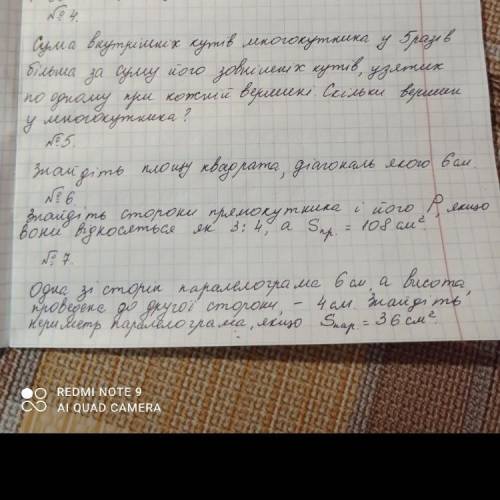 №4.
Сума внутрішніх кутів многокутника у 5 разів
більша за суму його зовнішніх кутів, узятих
по одному при кожній вершині. Скільки вершин
у многокутника?
№5.
Знайдіть площу квадрата, діагональ якого 6 см.
№6
Знайдіть сторони прямокутника і його P, якщо
вони відносяться як 3:4, а Sпр. = 108 см².
№7.
Одна зі сторін паралелограма 6 см, а висота,
проведена до другої сторони, – 4 см. Знайдіть
периметр паралелограма, якщо Sпар. = 36 см².
REDMI NOTE 9
AI QUAD CAMERA